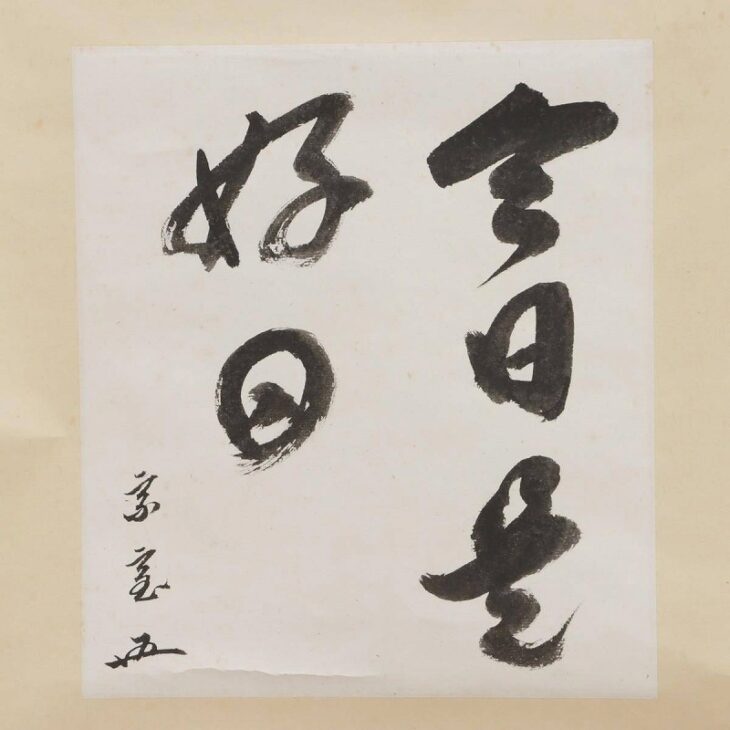 今日是
好日